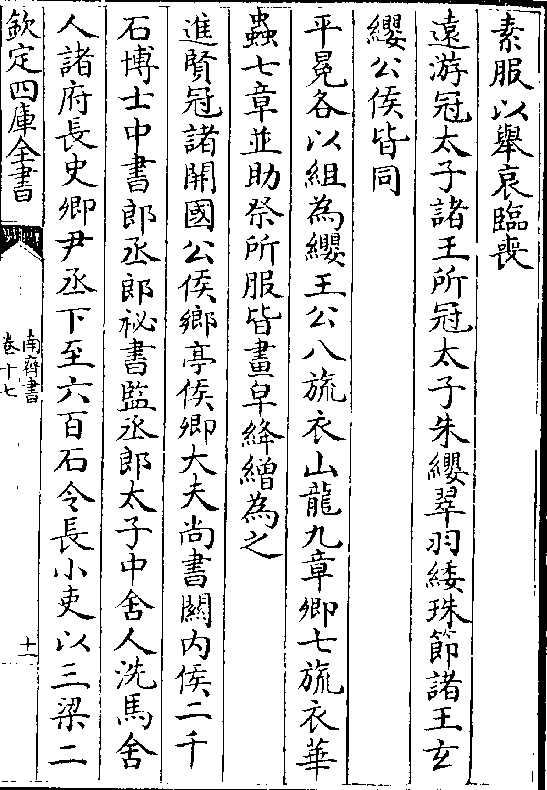 素服以舉哀臨喪
遠游冠太子諸王所冠太子朱纓翠羽緌珠節諸王玄
纓公侯皆同
平冕各以組為纓王公八旒衣山龍九章卿七旒衣華
蟲七章並助祭所服皆畫皁絳繒為之
進賢冠諸開國公侯鄉亭侯卿大夫尚書關內侯二千
石博士中書郎丞郎祕書監丞郎太子中舍人洗馬舍
人諸府長史卿尹丞下至六百石令長小吏以三梁二
欽定四庫全書
南齊書
卷十七
十一